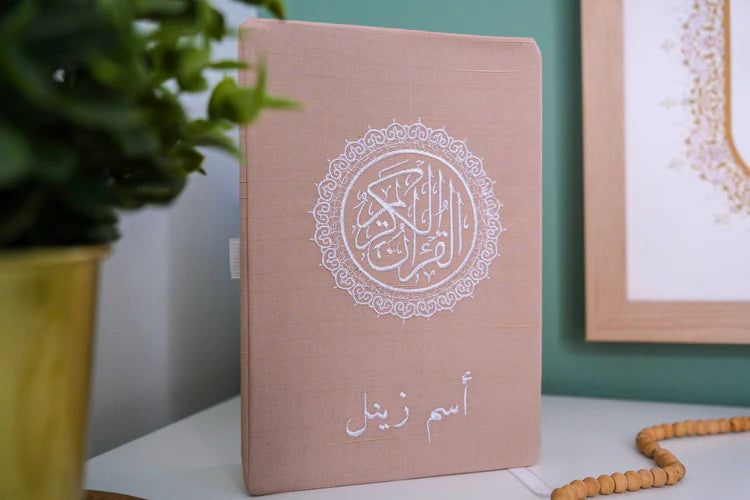 القرآن الكريم
أسم زينل